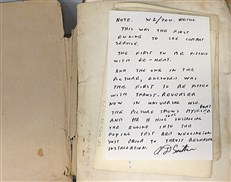 NOTE.
THIS WAS THE FIRST
ENGINE TO SEE COMBAT
SERVICE.
THE FIRST TO BE FITTED
WITH RE-HEAT.
AND THE ONE IN THE
PICTURE, ENCLOSED WAS
THE FIRST TO BE FITTED
WITH THRUST-REVERSER
NOW IN UNIVERSAL USE
THE PICTURE SHOWS MYSELF
AND MR H HILL INSTALLING
THE ENGINE INTO THE
FLYING TEST BED
JUST PRIOR TO THRUST REVERSER
INSTALLATION.